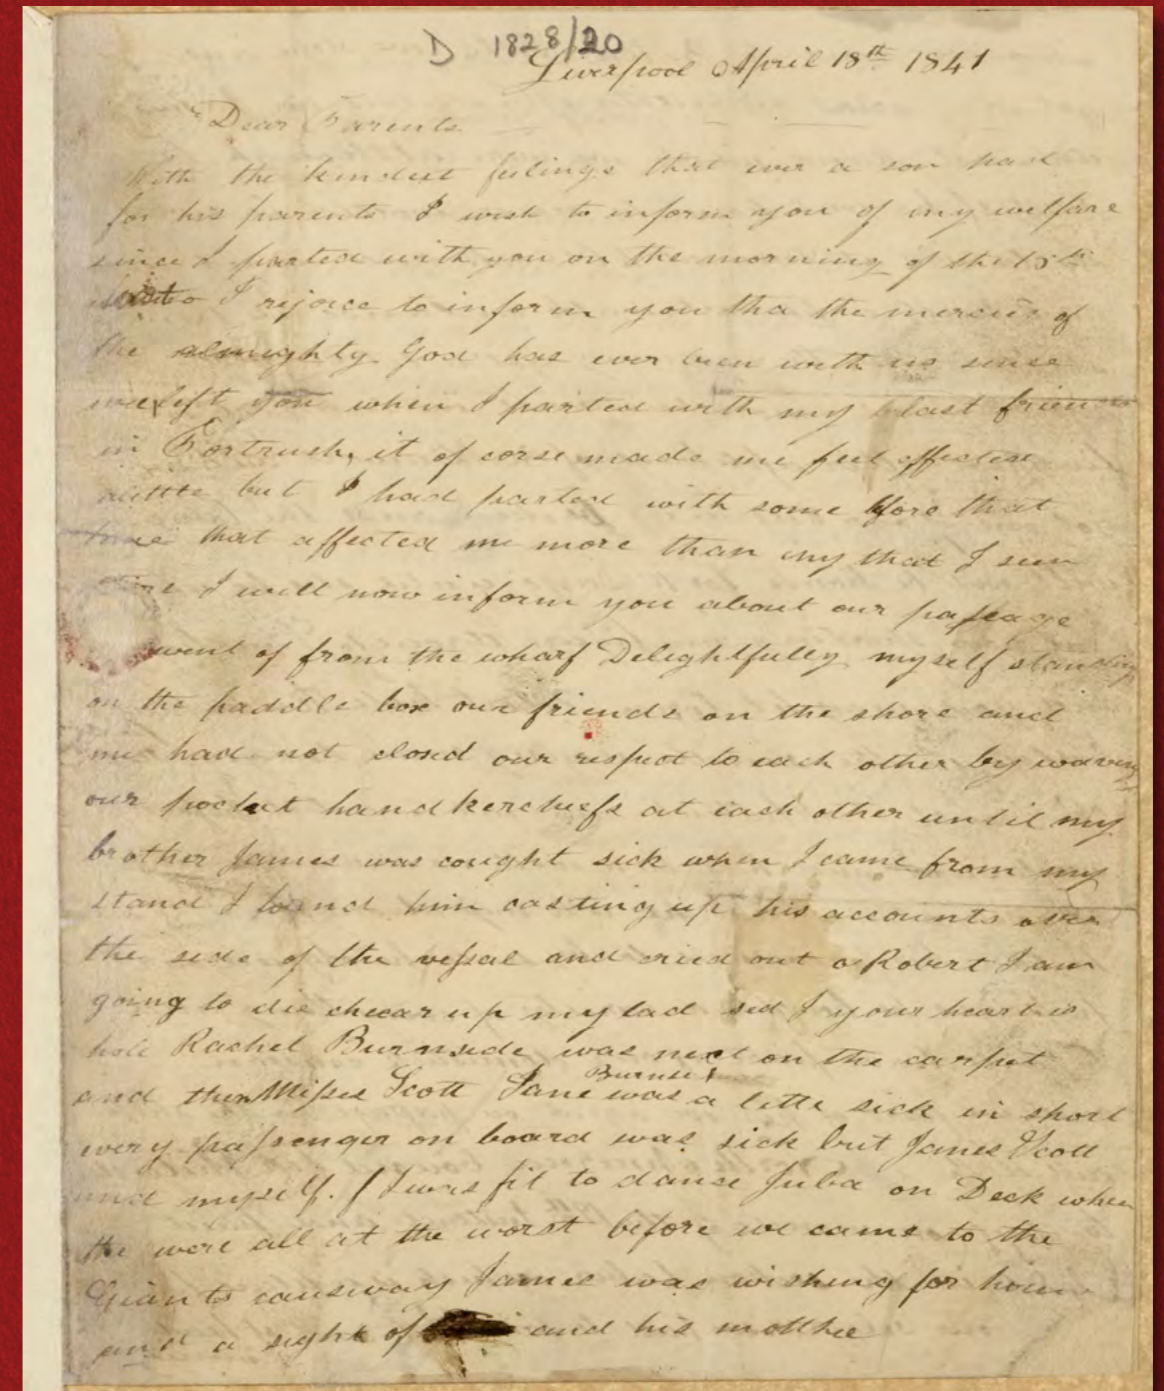 D 1828/20
Liverpool April 18th 1841
Dear Parents
With the kindest feilings that ever a son had
for his parents I wish to inform you of my wellfare
since I parted with you on the morning of the 15th
I rejoice to inform you tha the mercies of
the almighty God has ever been with us since
we left you when I parted with my last friends
in Portrush, it of corse made me feel effected
alittle but I had parted with some bfore that
time that affected me more than any that I seen
I will now inform you about our passage
went of from the wharf Delightfully myself standing
on the paddle box our friends on the shore and
me had not closed our respect to each other by waveing
our pocket handkercheifs at each other until my
brother James was cought sick when I came from my
stand I found him casting up his accounts over
the side of the vessal and cried out o Robert I am
going to die cheear up my lad sed I your heart is
hole Rachel Burnside was next on the carpet
Burnside
and then Misses Scott Jane was a little sick in short
every passenger on board was sick but James Scott
and myself. I was fit to danse Juba on Deck when
the were all at the worst before we came to the
Giants causeway James was wishing for home
and a sight of and his mother